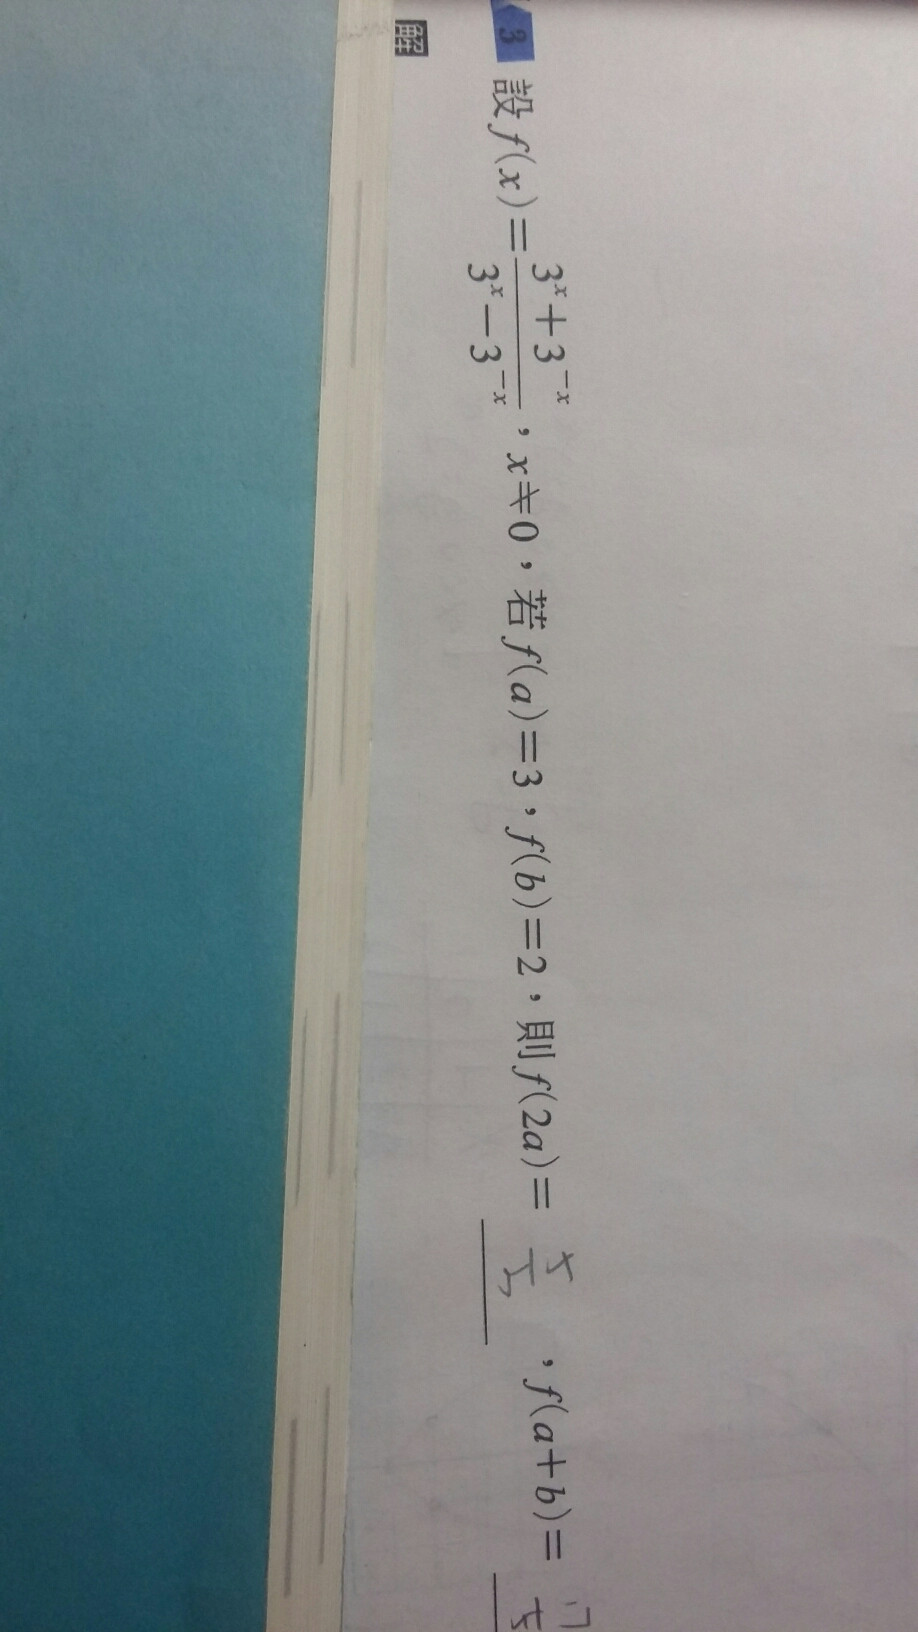 3 設f(x)=\frac{3^x+3^{-x}}{3^x-3^{-x}}，x≠0，若f(a)=3，f(b)=2，則f(2a)= \frac{5}{3}，f(a+b)= \frac{7}{5}
解